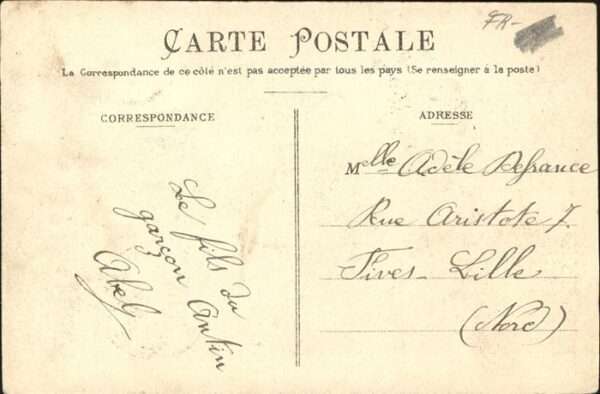 FR-
CARTE POSTALE
La Correspondance de ce côté n'est pas acceptée par tous les pays (Se renseigner à la poste)
CORRESPONDANCE
Le fils du
garçon Antin
Abel
ADRESSE
Melle Adèle Defrance
Rue Aristote 7.
Fives-Lille
(Nord)